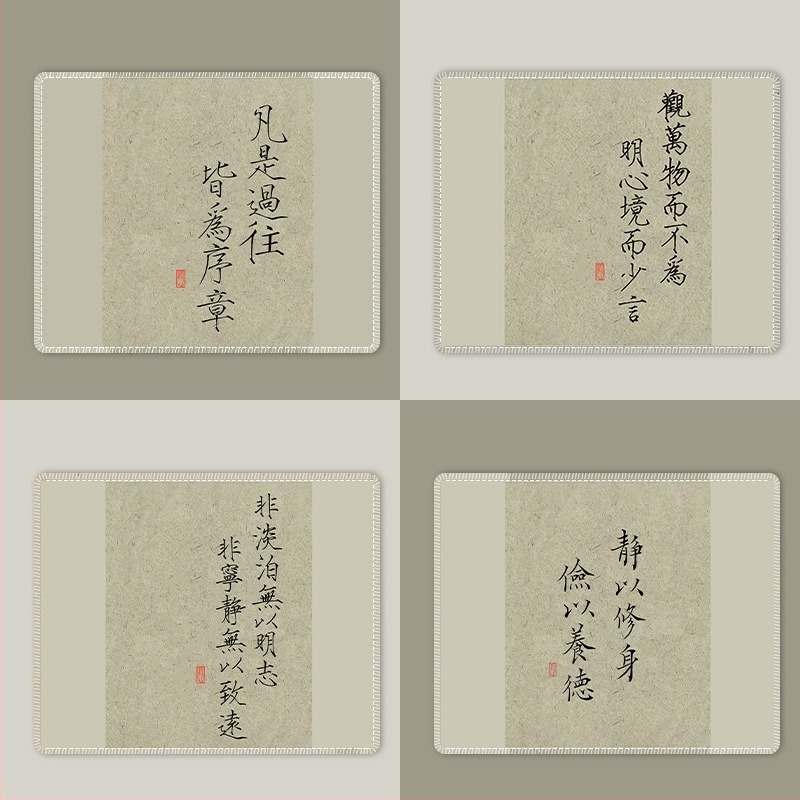 凡是過往
皆為序章
觀萬物而不為
明心境而少言
非淡泊無以明志
非寧静無以致遠
静以修身
儉以養德